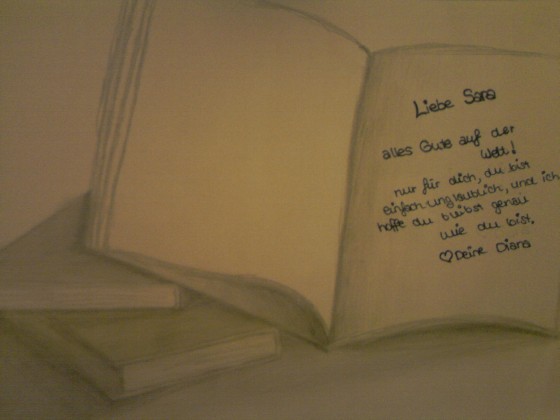 Liebe Sara
alles Gute auf der
Welt!
nur für dich, du bist
einfach unglaublich, und ich
hoffe du bleibst genau
wie du bist.
♡ Deine Diana